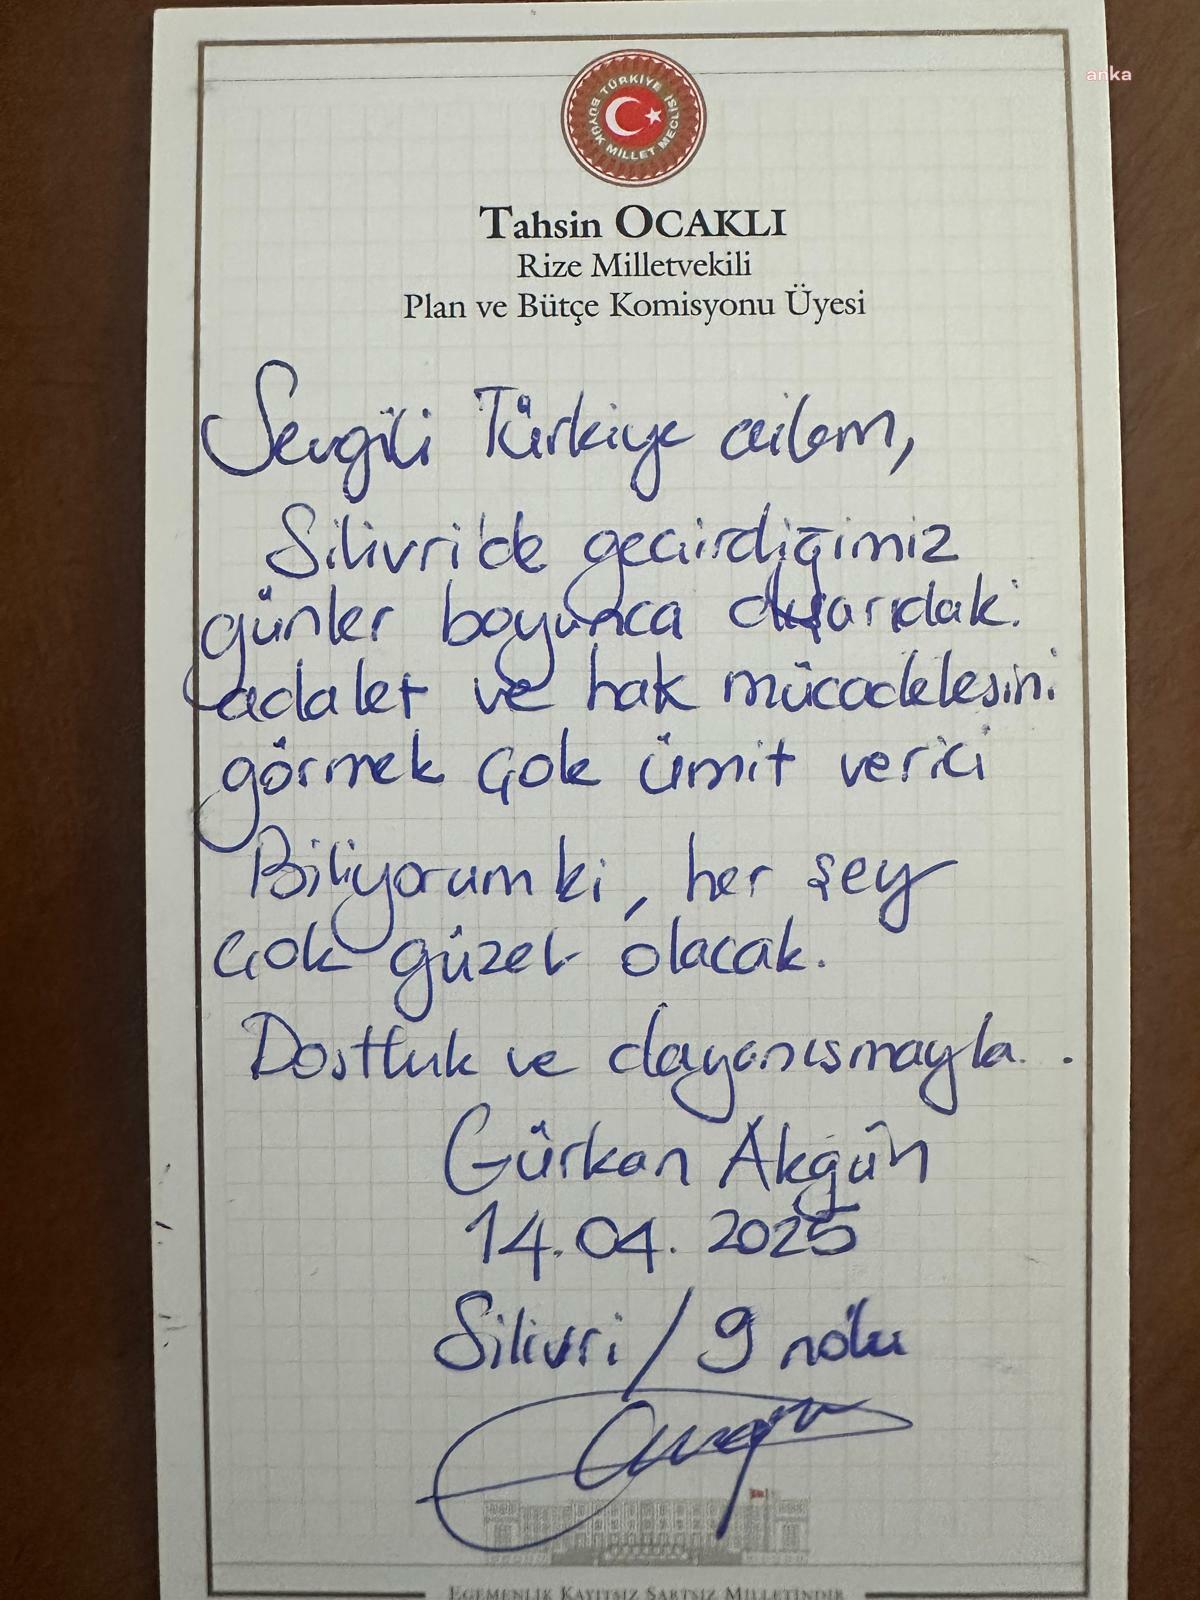 anka
TÜRKİYE BÜYÜK MİLLET MECLİSİ
Tahsin OCAKLI
Rize Milletvekili
Plan ve Bütçe Komisyonu Üyesi
Sevgili Türkiye ailem,
Silivri'de geçirdiğimiz
günler boyunca dışarıdaki
adalet ve hak mücadelesini
görmek çok ümit verici
Biliyorum ki, her şey
çok güzel olacak.
Dostluk ve dayanışmayla..
Gürkan Akgün
14.04.2025
Silivri / 9 nolu
EGEMENLİK KAYITSIZ ŞARTSIZ MİLLETİNDİR